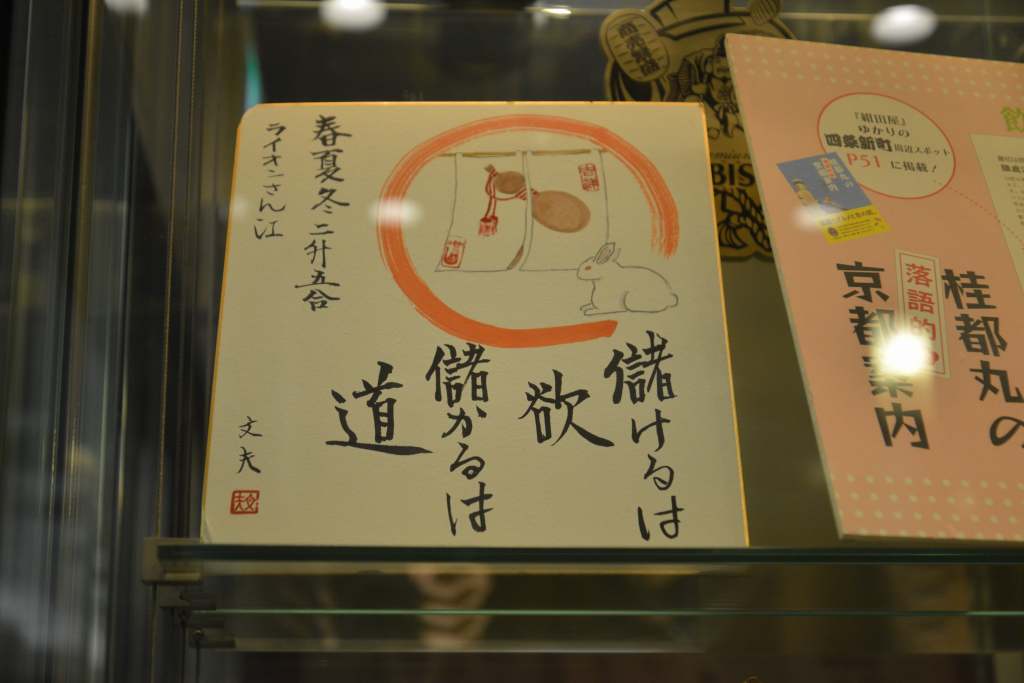 儲けるは
欲
儲かるは
道
春夏冬二升五合
ライオンさん江
文夫
『紺田屋』
ゆかりの
四条新町周辺スポット
P51に掲載!
桂都丸の
落語的
京都案内
BIS